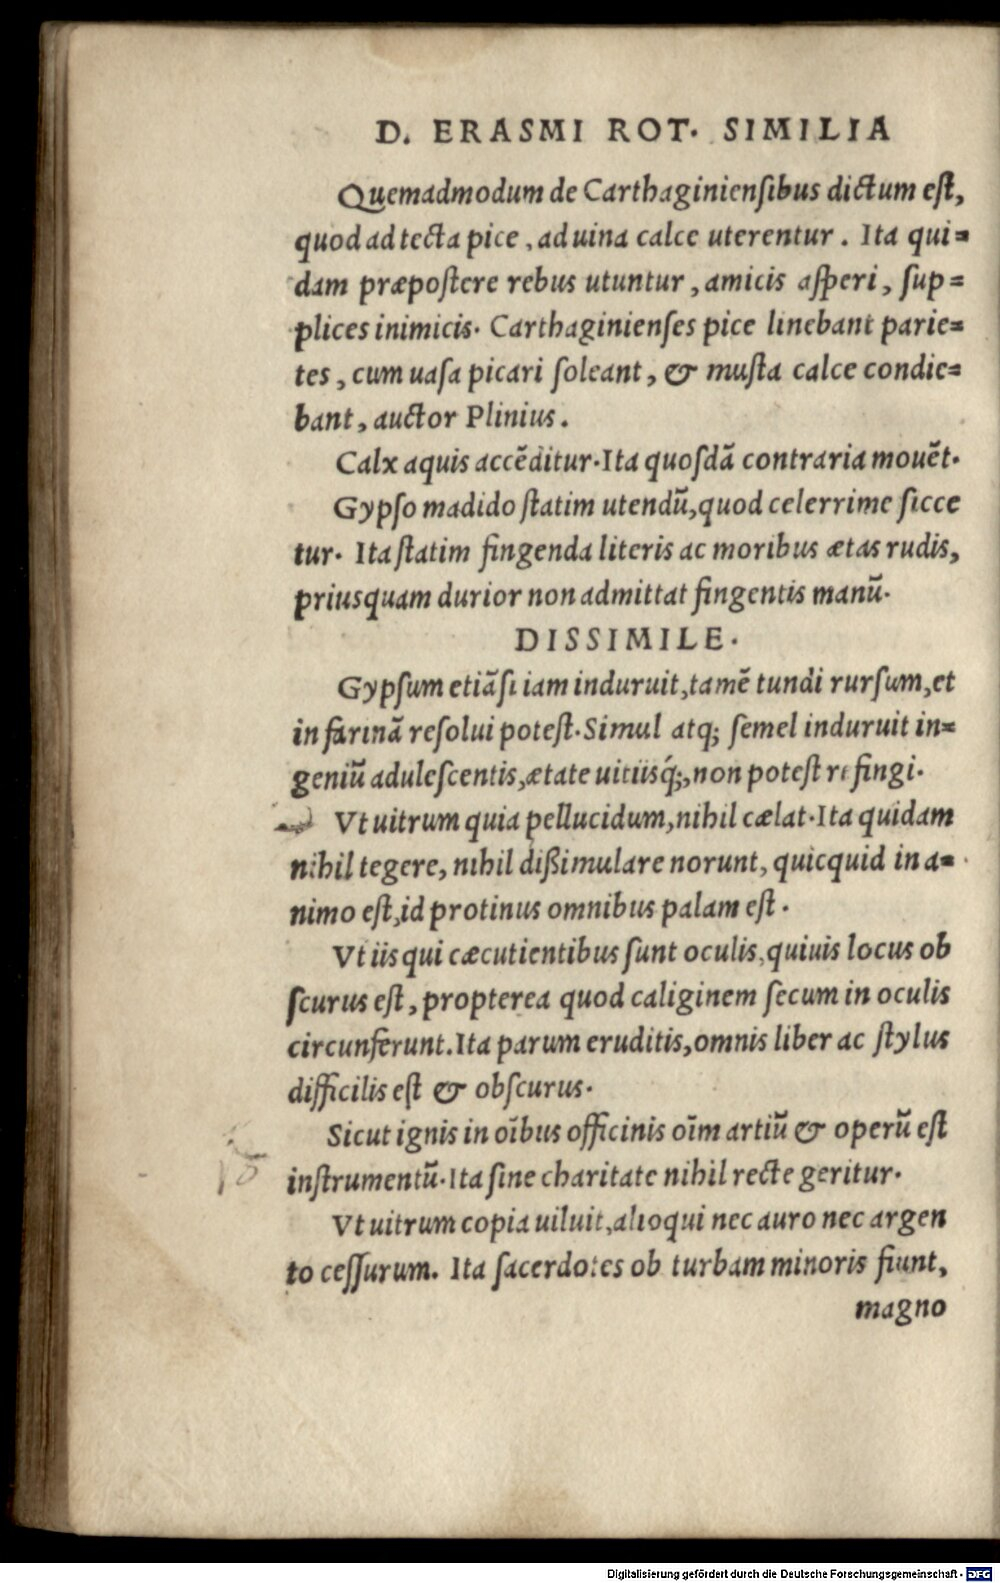 D. ERASMI ROT. SIMILIA
Quemadmodum de Carthaginienſibus dictum eſt,
quod ad tecta pice, ad uina calce uterentur. Ita qui=
dam præpoſtere rebus utuntur, amicis aſperi, ſup=
plices inimicis. Carthaginienſes pice linebant parie=
tes, cum uaſa picari ſoleant, & muſta calce condie=
bant, auctor Plinius.
Calx aquis accẽditur. Ita quoſdã contraria mouẽt.
Gypſo madido ſtatim utendũ, quod celerrime ſicce
tur. Ita ſtatim fingenda literis ac moribus ætas rudis,
priusquam durior non admittat fingentis manũ.
DISSIMILE.
Gypſum etiãſi iam induruit, tamẽ tundi rurſum, et
in farinã reſolui poteſt. Simul atq; ſemel induruit in=
geniũ aduleſcentis, ætate uitiisq́;, non poteſt refingi.
Vt uitrum quia pellucidum, nihil cælat. Ita quidam
nihil tegere, nihil dißimulare norunt, quicquid in a=
nimo eſt, id protinus omnibus palam eſt.
Vt iis qui cæcutientibus ſunt oculis, quiuis locus ob
ſcurus eſt, propterea quod caliginem ſecum in oculis
circunferunt. Ita parum eruditis, omnis liber ac ſtylus
difficilis eſt & obſcurus.
Sicut ignis in oĩbus officinis oĩm artiũ & operũ eſt
inſtrumentũ. Ita ſine charitate nihil recte geritur.
Vt uitrum copia uiluit, alioqui nec auro nec argen
to ceſſurum. Ita ſacerdotes ob turbam minoris fiunt,
magno
Digitalisierung gefördert durch die Deutsche Forschungsgemeinschaft - DFG